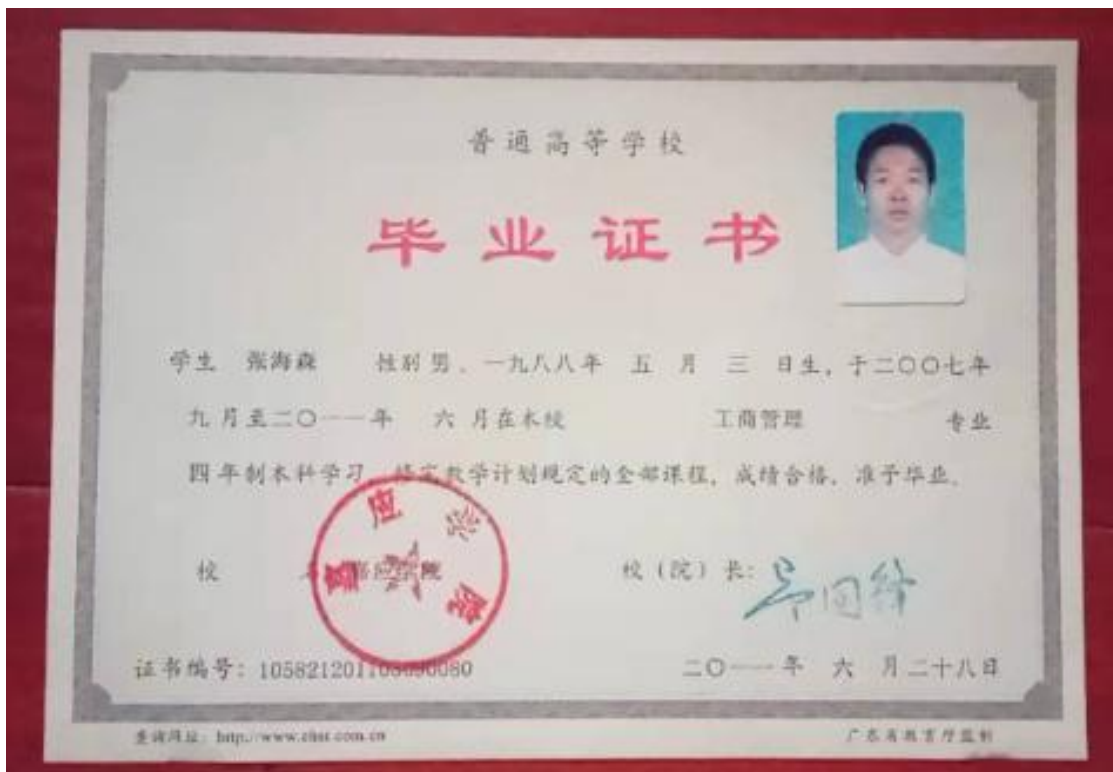 普通高等学校
毕业证书
学生 张海森 性别 男、一九八八年 五 月 三 日生，于二〇〇七年
九 月至二〇一一年 六 月在本校 工商管理 专业
四 年制本科学习，修完教学计划规定的全部课程，成绩合格，准予毕业。
校 名：嘉应学院 校（院）长：
嘉应学院
证书编号：1058212011 二〇一一年 六 月二十八日
查询网址：http://www.chsi.com.cn 广东省教育厅监制